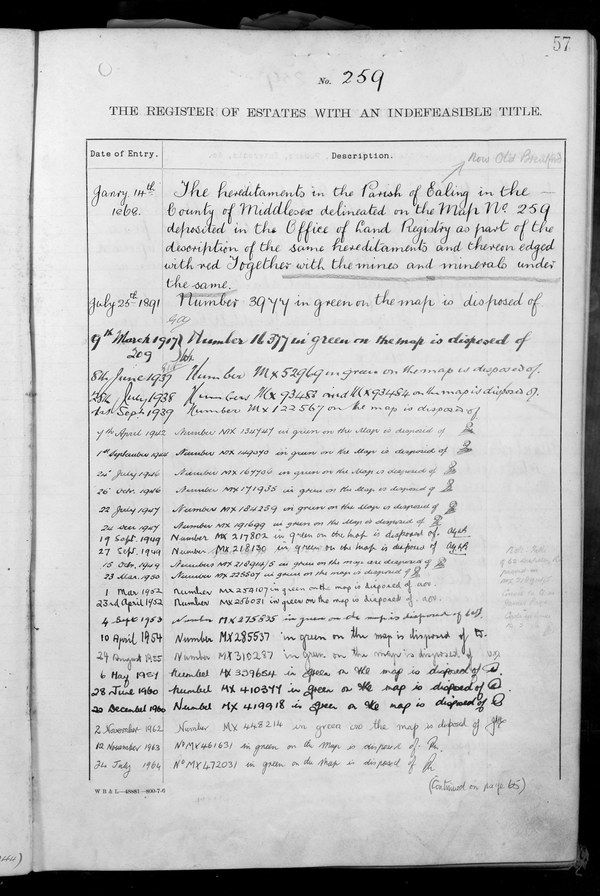 57
No. 259
THE REGISTER OF ESTATES WITH AN INDEFEASIBLE TITLE.
Date of Entry. Description.
Now Old Brentford
Janry. 14th 1868. The hereditaments in the Parish of Ealing in the
County of Middlesex delineated on the Map No. 259
deposited in the Office of Land Registry as part of the
description of the same hereditaments and thereon edged
with red Together with the mines and minerals under
the same.
July 25th 1891 Number 3977 in green on the map is disposed of
9th March 1917 Number 16377 in green on the map is disposed of
209
8th June 1937 Number MX52969 in green on the map is disposed of.
28th July, 1938 Numbers MX 93483 and MX93484 on the map is disposed of.
1st Sept. 1939 Number MX122567 on the map is disposed of
7th April 1942 Number MX 134747 in green on the Map is disposed of
1st September 1944 Number MX 149070 in green on the Map is disposed of
24th July 1946 Number MX 167706 in green on the Map is disposed of
26th Octr. 1946 Number MX 171935 in green on the Map is disposed of
22 July 1947 Number MX 184259 in green on the Map is disposed of
24 Decr 1947 Number MX 191699 in green on the Map is disposed of
19 Sept. 1949 Number MX 217802 in green on the map is disposed of.
27 Sept. 1949 Number MX218130 in green on the map is disposed of
15 Oct. 1949 Number MX 218914/5 in green on the map are disposed of
23 Mar. 1950 Number MX 225507 in green on the map is disposed of
1 Mar 1952 Number MX 254107 in green on the map is disposed of
23rd April 1952 Number MX256031 in green on the map is disposed of.
4 Sept 1953 Number MX275535 in green on the map is disposed of
10 April 1954 Number MX285537 in green on the map is disposed of
24 August 1955 Number MX310287 in green on the map is disposed of
6 May 1957 Number MX 339654 in green on the map is disposed of
28 June 1960 Number MX 410377 in green on the map is disposed of
20 December 1960 Number MX 419918 in green on the map is disposed of
2 November 1962 Number MX 448214 in green on the map is disposed of
12 November 1963 No MX461631 in green on the Map is disposed of.
24 July 1964 No MX472031 in green on the Map is disposed of
(Continued on page 65)
W B & L—48881—800-7-6